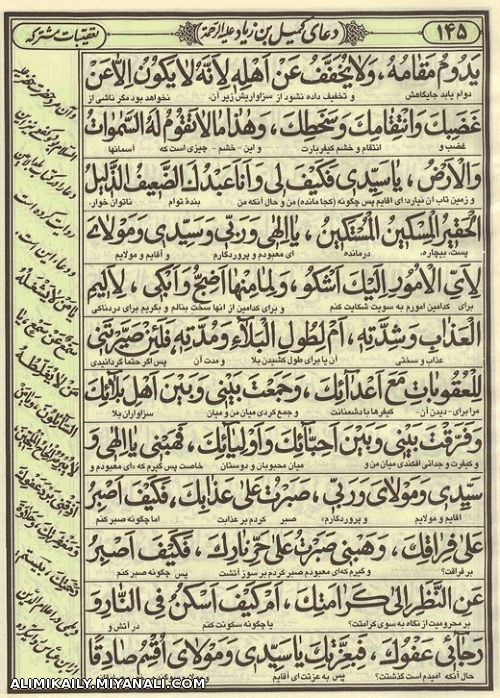 ۱۴۵
دعای کمیل بن زیاد علیه الرحمة
تعقیبات مشترکه
يَدُومُ مَقَامُهُ، وَلَا يُخَفَّفُ عَنْ أَهْلِهِ لِأَنَّهُ لَا يَكُونُ إِلَّا عَنْ
دوام یابد جایگاهش و تخفیف داده نشود از سزاواریش زیر آن، نخواهد بود مگر ناشی از
غَضَبِكَ وَانْتِقَامِكَ وَسَخَطِكَ، وَهٰذَا مَا لَا تَقُومُ لَهُ السَّمٰوَاتُ
غضب و انتقام و خشم کیفربارت و این - خشم - چیزی است که آسمانها
وَالْأَرْضُ، يَا سَيِّدِي فَكَيْفَ لِي وَأَنَا عَبْدُكَ الضَّعِيفُ الذَّلِيلُ
و زمین تاب آن نیارد؛ ای آقایم پس چگونه (کجا مانده) من و حال آنکه من بندهٔ توام ناتوان خوار،
الْحَقِيرُ الْمِسْكِينُ الْمُسْتَكِينُ، يَا إِلٰهِي وَرَبِّي وَسَيِّدِي وَمَوْلَايَ
پست، بیچاره، درمانده ای معبودم و پروردگارم و آقایم و مولایم
لِأَيِّ الْأُمُورِ إِلَيْكَ أَشْكُو، وَلِمَا مِنْهَا أَضِجُّ وَأَبْكِي، لِأَلِيمِ
برای کدامین امورم به سویت شکایت کنم و برای کدامین از آنها سخت بنالم و بگریم برای دردناکی
الْعَذَابِ وَشِدَّتِهِ، أَمْ لِطُولِ الْبَلَاءِ وَمُدَّتِهِ، فَلَئِنْ صَيَّرْتَنِي
عذاب و سختی آن یا برای طول کشیدن بلا و مدت آن پس اگر حتما گردانیدی
لِلْعُقُوبَاتِ مَعَ أَعْدَائِكَ، وَجَمَعْتَ بَيْنِي وَبَيْنَ أَهْلِ بَلَائِكَ
مرا برای - دیدن آن - کیفرها با دشمنانت و جمع کردی میان من و میان سزاواران بلا
وَفَرَّقْتَ بَيْنِي وَبَيْنَ أَحِبَّائِكَ وَأَوْلِيَائِكَ، فَهَبْنِي يَا إِلٰهِي وَ
و کیفرت و جدائی افکندی میان من و میان محبوبان و دوستان خاصت پس گیرم که «ای معبودم و
سَيِّدِي وَمَوْلَايَ وَرَبِّي، صَبَرْتُ عَلَى عَذَابِكَ، فَكَيْفَ أَصْبِرُ
آقایم و مولایم و پروردگارم» صبر کردم بر عذابت اما چگونه صبر کنم
عَلَى فِرَاقِكَ، وَهَبْنِي صَبَرْتُ عَلَى حَرِّ نَارِكَ، فَكَيْفَ أَصْبِرُ
بر فراقت؟ و گیرم که ای معبودم صبر کردم بر سوز آتشت پس چگونه صبر کنم
عَنِ النَّظَرِ إِلَى كَرَامَتِكَ، أَمْ كَيْفَ أَسْكُنُ فِي النَّارِ وَ
بر محرومیت از نگاه به سوی کرامتت؟ یا چگونه سکونت کنم در آتش و
رَجَائِي عَفْوُكَ، فَبِعِزَّتِكَ يَا سَيِّدِي وَمَوْلَايَ أُقْسِمُ صَادِقًا
حال آنکه امیدم است گذشتت؟ پس به عزتت ای آقایم
و آن مرد حضرت خضر علیه
السلام بود کفعمی نیز این
دعا را در کتاب بلد الامین
روایت کرده است
و دعا این است
یا من لا یشغله
سمع عن سمع یا
من لا یغلطه
السائلون و یا من
لا یبرمه الحاح الملحین
اذقنی برد عفوک
و مغفرتک و حلاوة
ALIMIKAILY.MIYANALI.COM
ALIMIKAILY.MIYANALI.COM